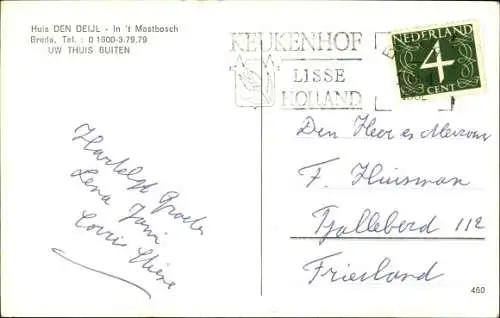 Huis DEN DEIJL - In 't Mastbosch
Breda, Tel. : 0 1600-3.79.79
UW THUIS BUITEN
KEUKENHOF
LISSE
HOLLAND
NEDERLAND
4
CENT
Hartelijk Groeten
Lena Jani
Corrie
Den Heer en Mevrouw
F. Huisman
Tjalleberd 112
Friesland
460